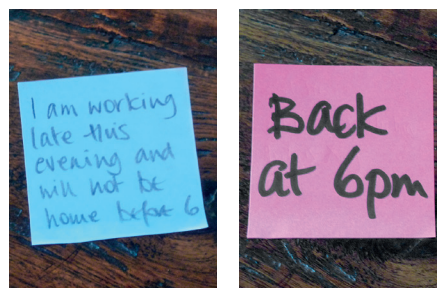 I am working
late this
evening and
will not be
home before 6
Back
at 6pm